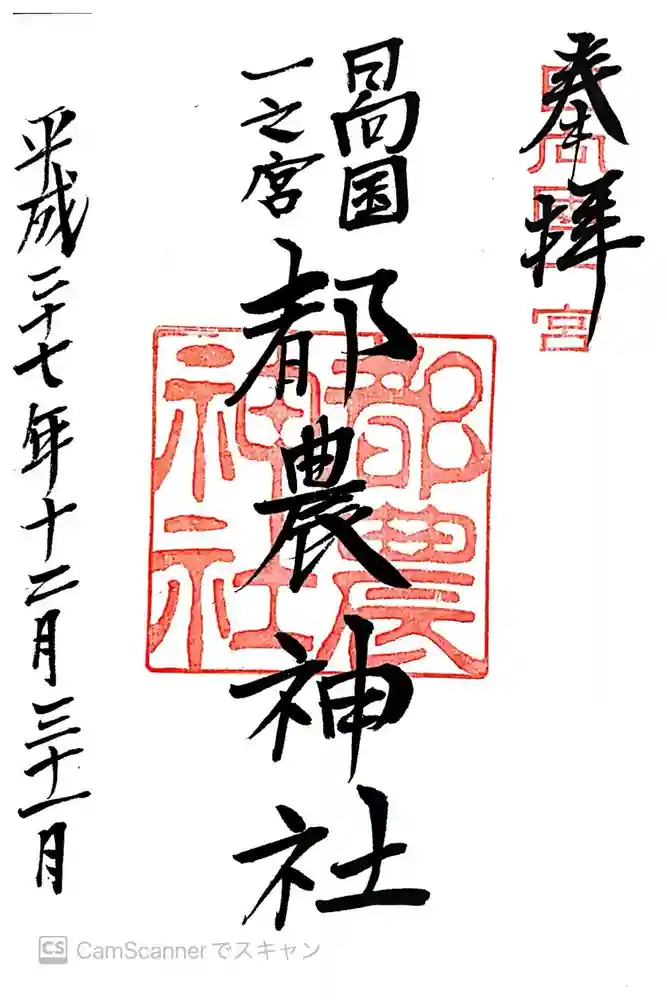 奉拝
日向国一宮
日向国
一之宮
都農神社
都農
神社
平成二十七年十二月三十一月
CS CamScannerでスキャン